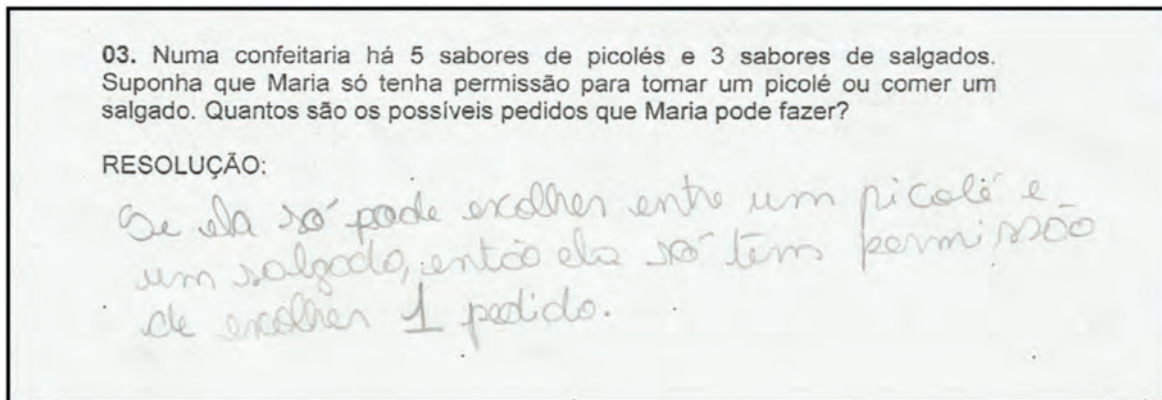 03. Numa confeitaria há 5 sabores de picolés e 3 sabores de salgados.
Suponha que Maria só tenha permissão para tomar um picolé ou comer um
salgado. Quantos são os possíveis pedidos que Maria pode fazer?
RESOLUÇÃO:
Se ela só pode escolher entre um picolé e
um salgado, então ela só tem permissão
de escolher 1 pedido.